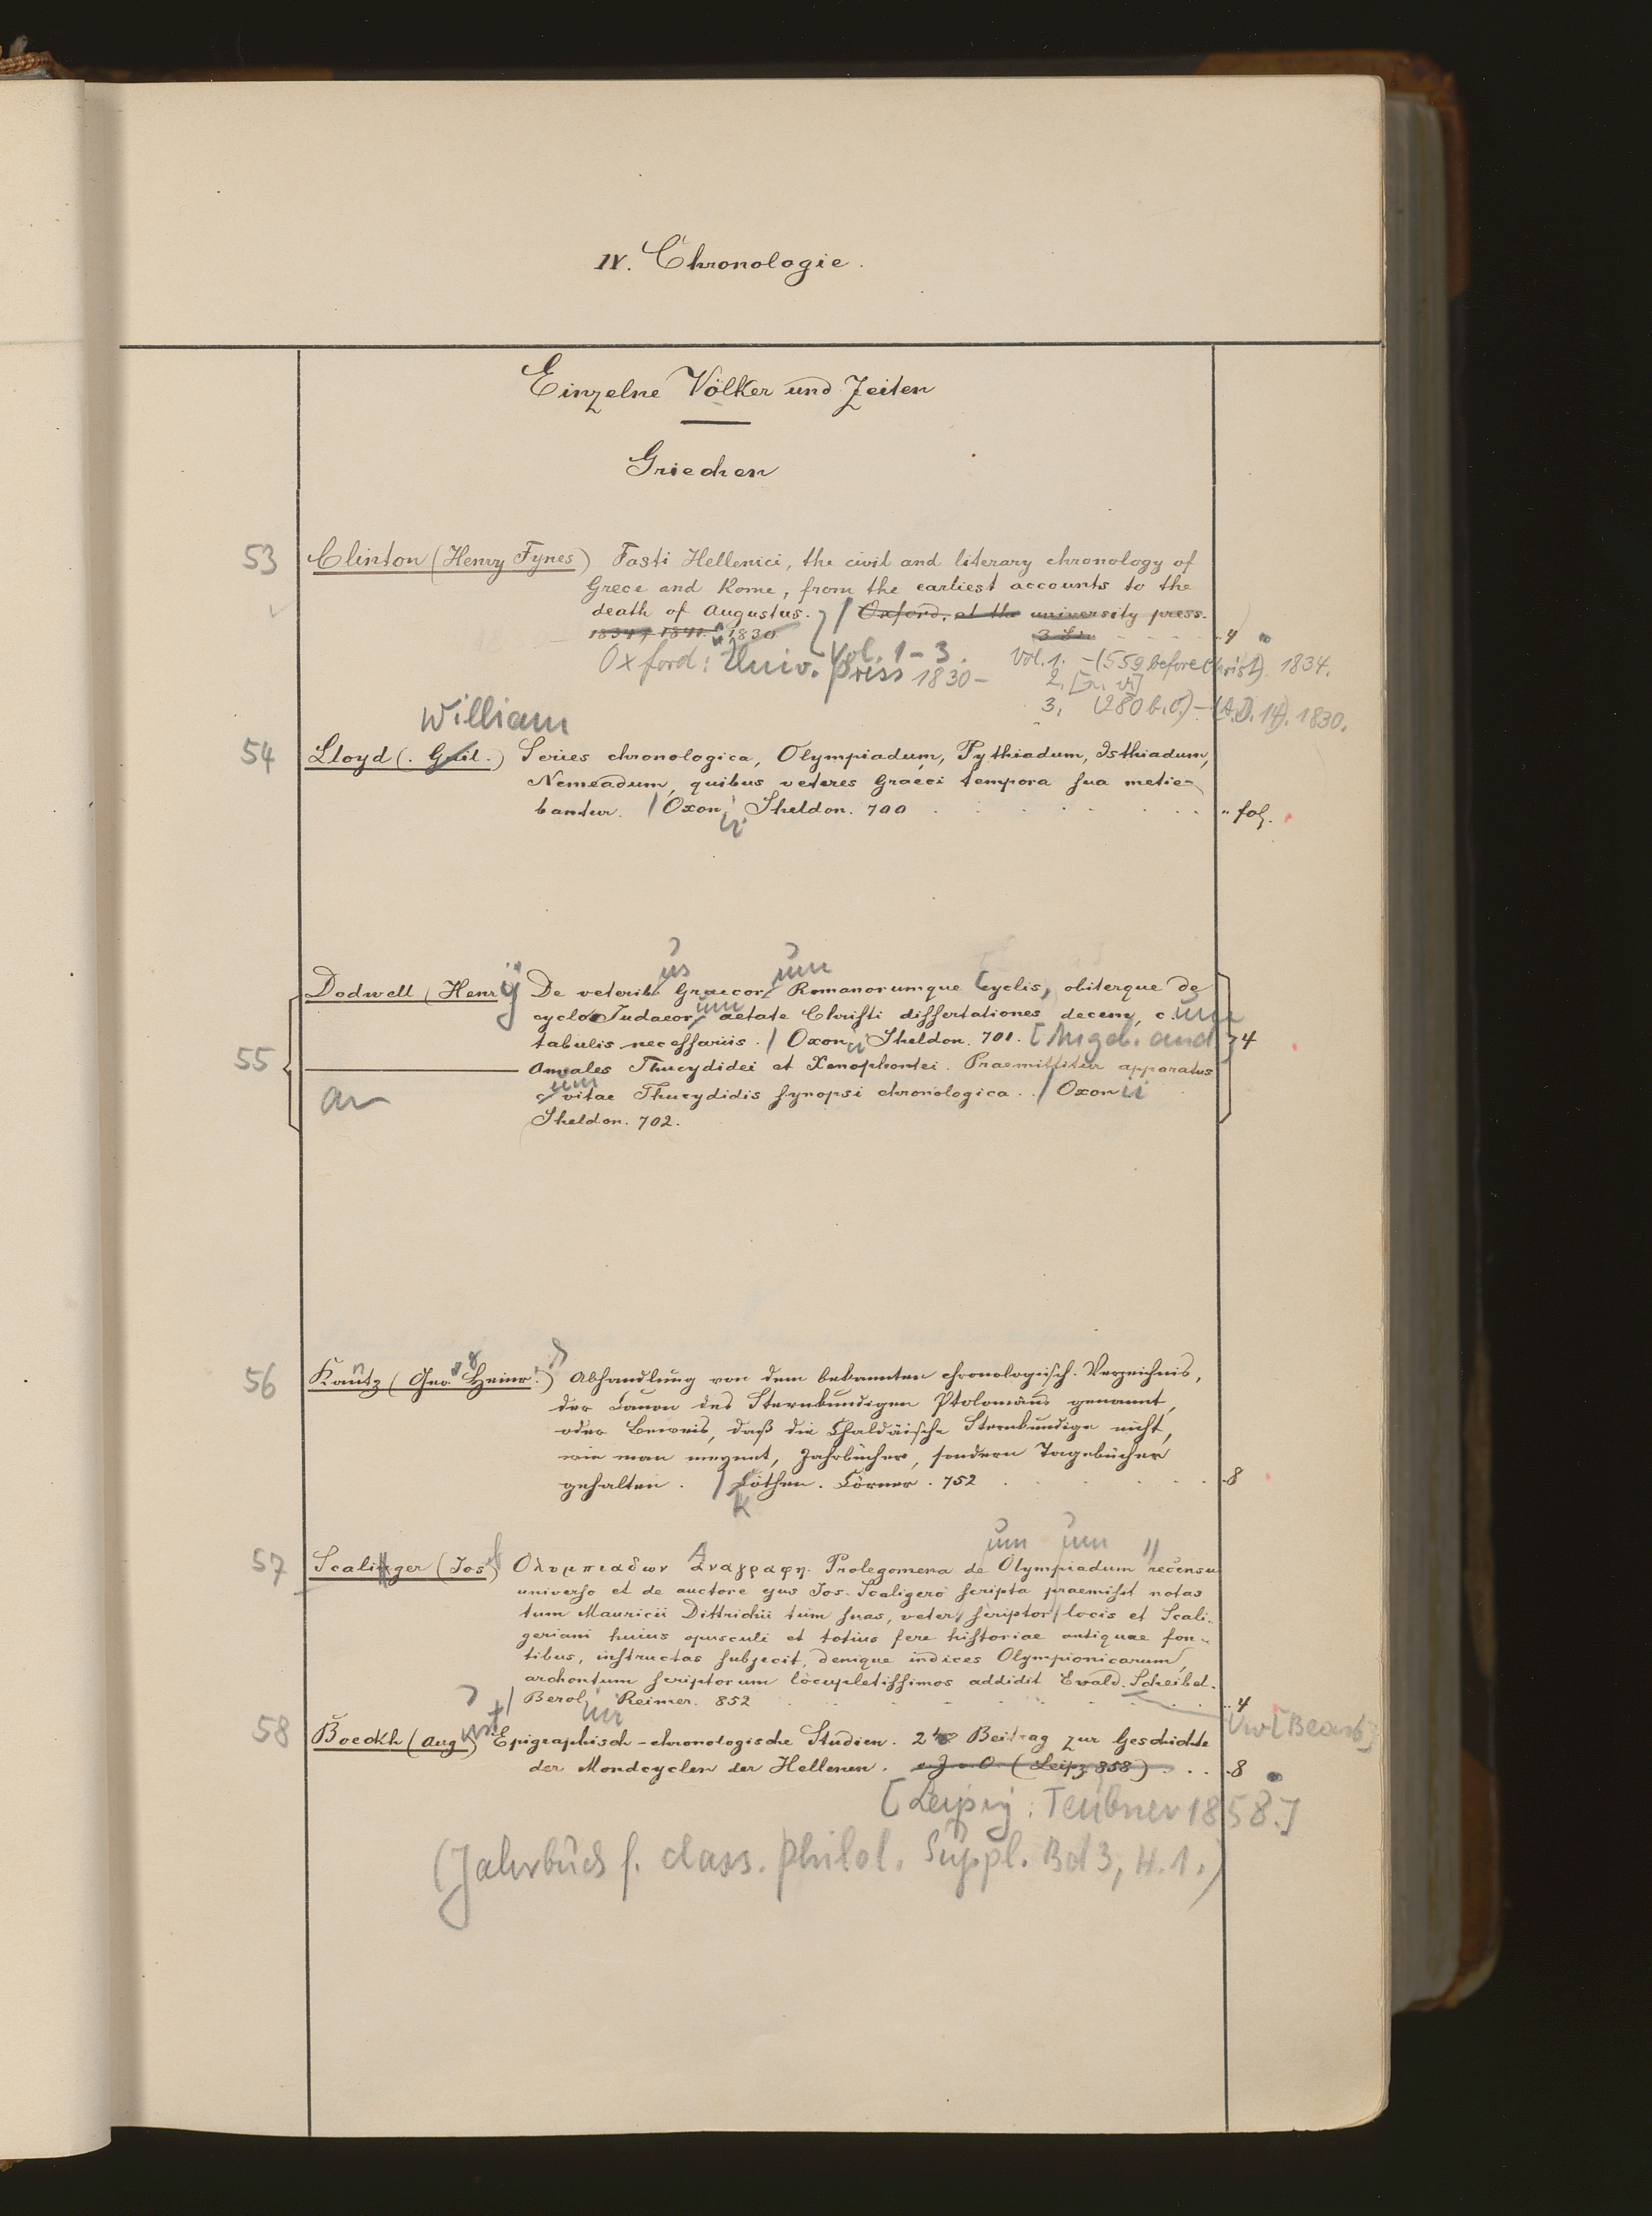 IV. Chronologie.
Einzelne Völker und Zeiten
Griechen
53 Clinton (Henry Fynes) Fasti Hellenici, the civil and literary chronology of
Grece and Rome, from the earliest accounts to the
death of Augustus. / Oxford, at the university press.
1834, 1841. 1830 3 4
Oxford: Univ. Press 1830- Vol. 1-3. Vol. 1. -(559 before Christ). 1834.
2.
3. (280 b.C.) - (A.D. 14). 1830.
William
54 Lloyd (. Guil.) Series chronologica, Olympiadum, Pythiadum, Isthiadum,
Nemeadum, quibus veteres Graeci tempora sua metie-
bantur. / Oxonii, Sheldon. 700 " fol.
us um
Dodwell (Henry De veterib Graecor Romanorumque Cyclis, obiterque de
um um
cyclo Judaeor aetate Christi dissertationes decem, c.
tabulis necessariis. / Oxonii Sheldon. 701. [Angeb. and 4
55 Annales Thucydidei et Xenophontei. Praemittitur apparatus
an um
c vitae Thucydidis synopsi chronologica. / Oxonii
Sheldon. 702.
56 Kautz (Geo Heinr.) Abhandlung von dem bekannten chronologisch. Verzeichnis,
der Canon des Sternkundigen Ptolomäus genannt,
oder Beweis, daß die Chaldäische Sternkundige nicht,
wie man meynet, Jahrbücher, sondern Tagebücher
gehalten. / Cöthen. Cörner. 752 8
K
um um "
57 Scalinger (Jos) Ολυμπιαδων Αναγραφη. Prolegomena de Olympiadum recensu
universo et de auctore ejus Jos. Scaligero scripta praemisit notas
tum Mauricii Dittrichii tum suas, veter scriptor locis et Scali-
geriani huius opusculi et totius fere historiae antiquae fon-
tibus, instructas subjecit, denique indices Olympionicarum,
archontum scriptorum locupletissimos addidit Ewald. Scheibel.
/ Berol. Reimer. 852 4
58 Boeckh (August) Epigraphisch-chronologische Studien. 2 Beitrag zur Geschichte
der Mondcyclen der Hellenen. o. J. u. O. (Leipz 858) 8
[Leipzig: Teubner 1858.]
(Jahrbüch f. class. Philol. Suppl. Bd 3, H. 1.)